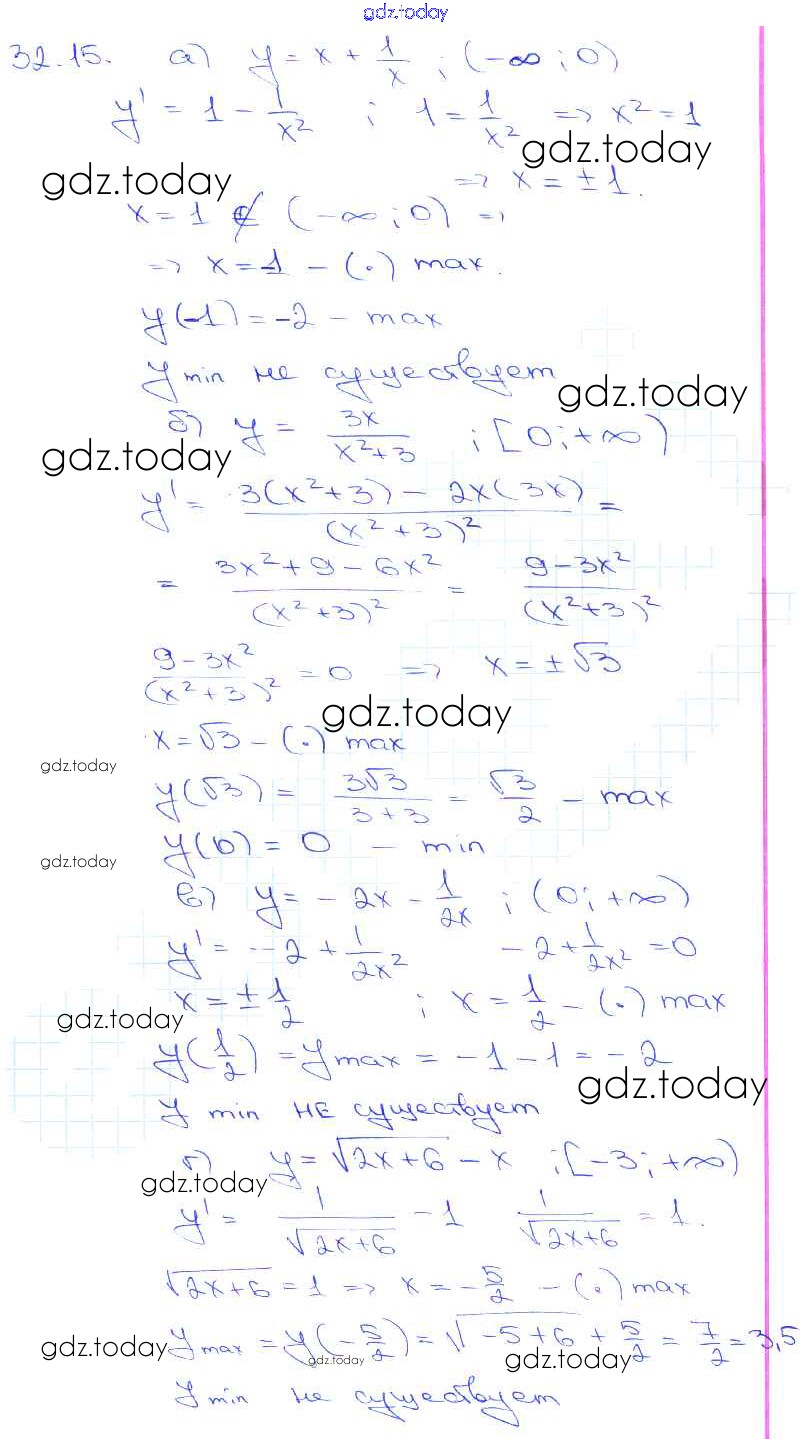 gdz.today
32.15. а) y = x + 1/x ; (-∞ ; 0)
y' = 1 - 1/x² ; 1 = 1/x² => x² = 1
gdz.today
gdz.today
=> x = ±1.
x = 1 ∉ (-∞ ; 0) =>
=> x = -1 - (·) max.
y(-1) = -2 - max
y min не существует
gdz.today
б) y = 3x/(x²+3) ; [0; +∞)
gdz.today
y' = (3(x²+3) - 2x(3x))/(x²+3)² =
= (3x²+9-6x²)/(x²+3)² = (9-3x²)/(x²+3)²
(9-3x²)/(x²+3)² = 0 => x = ±√3
gdz.today
x = √3 - (·) max
gdz.today
y(√3) = 3√3/(3+3) = √3/2 - max
y(0) = 0 - min
gdz.today
в) y = -2x - 1/2x ; (0; +∞)
y' = -2 + 1/2x² -2 + 1/2x² = 0
x = ± 1/2 ; x = 1/2 - (·) max
gdz.today
y(1/2) = y max = -1 - 1 = -2
gdz.today
y min НЕ существует
г) y = √(2x+6) - x ; [-3; +∞)
gdz.today
y' = 1/√(2x+6) - 1 1/√(2x+6) = 1.
√(2x+6) = 1 => x = -5/2 - (·) max
gdz.today
y max = y(-5/2) = √(-5+6) + 5/2 = 7/2 = 3,5
gdz.today
gdz.today
y min не существует